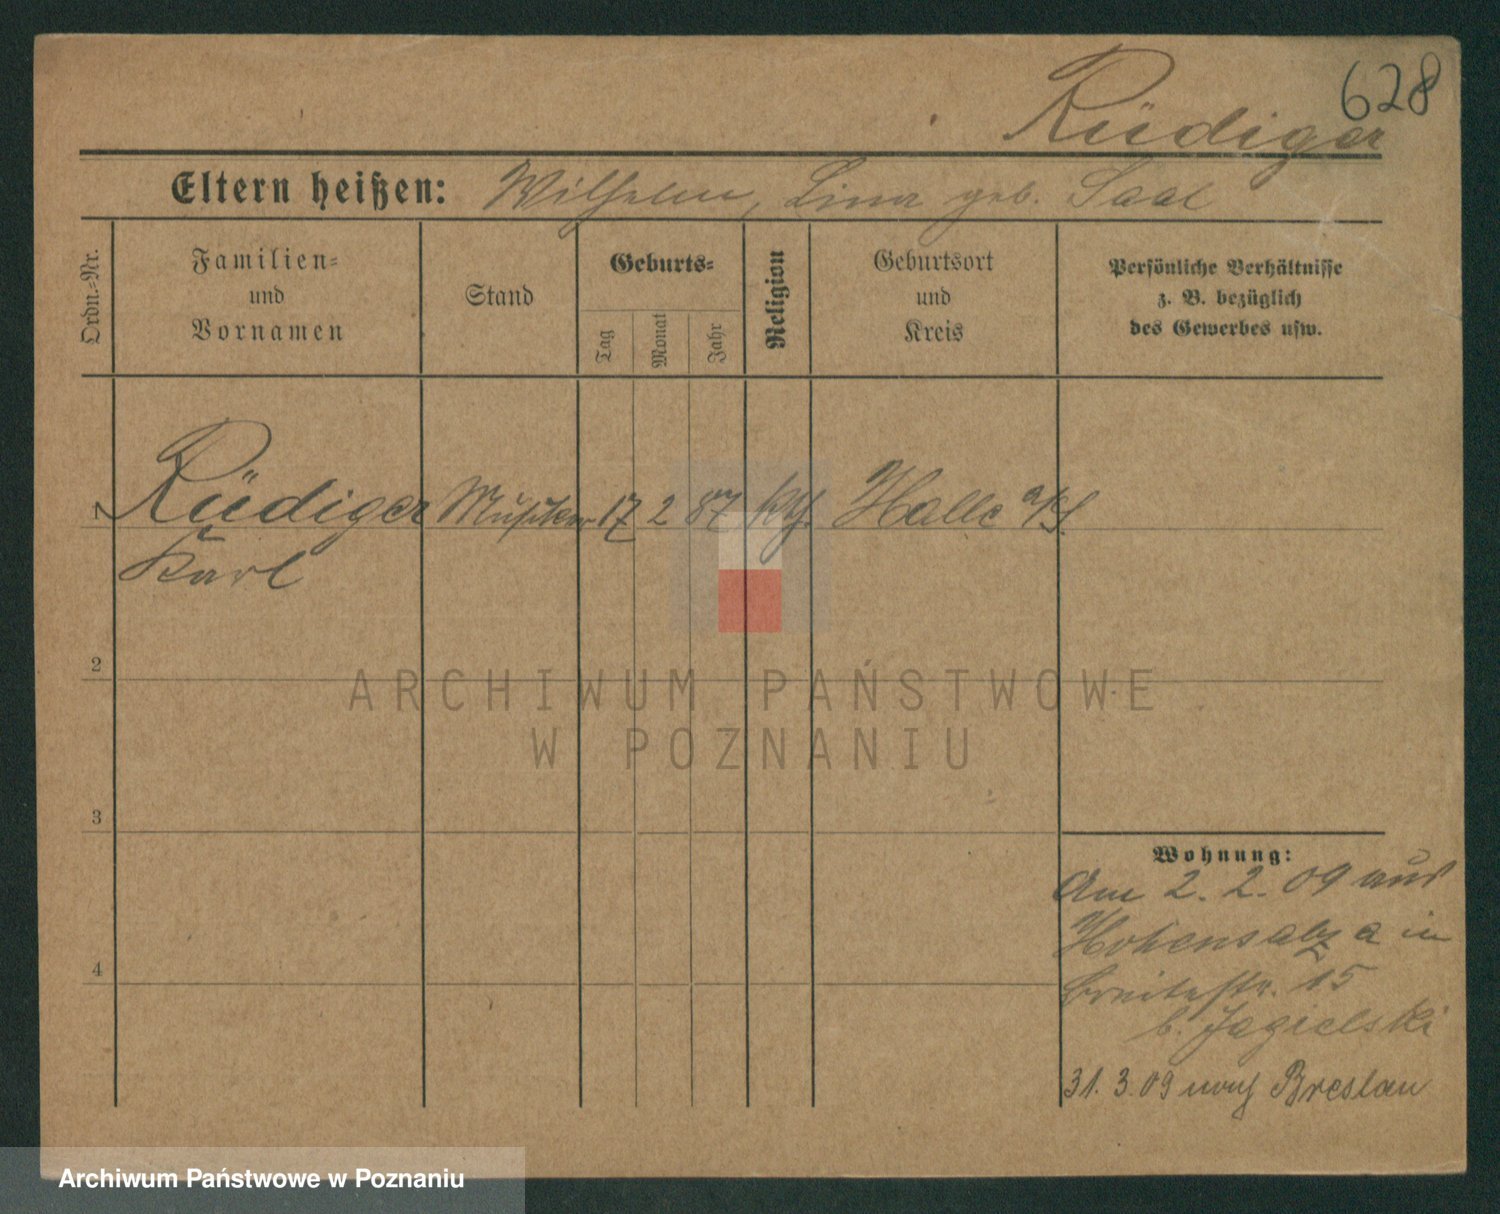 628
Rüdiger
Eltern heißen: Wilhelm, Lina geb. Saal
Ordn.-Nr.
Familien-
und
Vornamen
Stand
Geburts-
Tag
Monat
Jahr
Religion
Geburtsort
und
Kreis
Persönliche Verhältnisse
z. B. bezüglich
des Gewerbes usw.
1 Rüdiger Musiker 17 2 87 kth. Halle a/S.
Karl
2
3
4
ARCHIWUM PAŃSTWOWE
W POZNANIU
Wohnung:
Am 2. 2. 09 aus
Hohensalza in
Breitestr. 15
b. Jagielski
31. 3. 09 nach Breslau
Archiwum Państwowe w Poznaniu